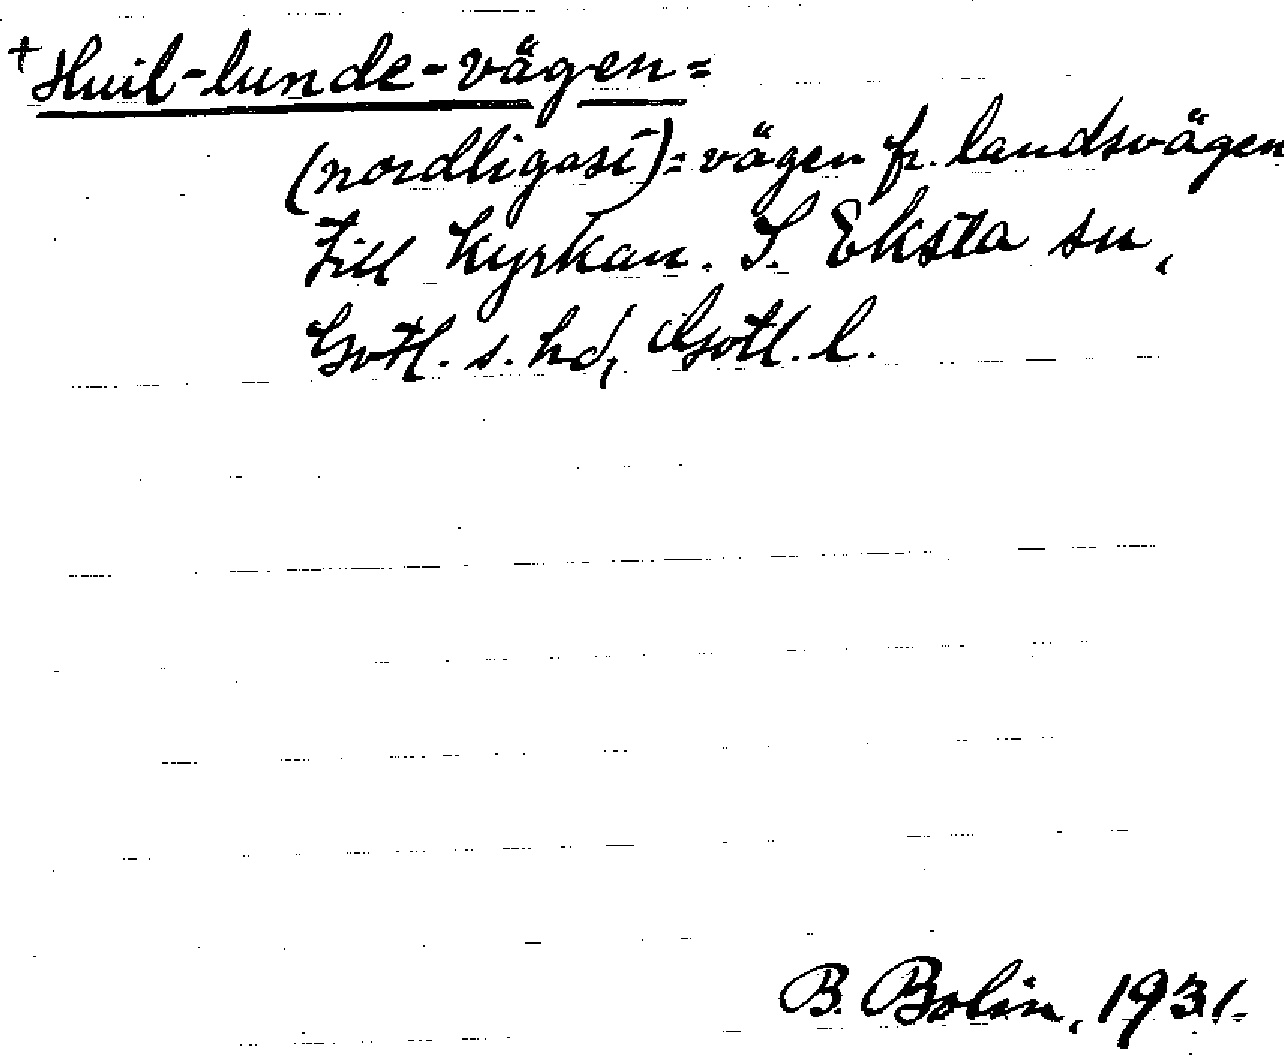 + Huil-lunde-vägen =
(nordligast) = vägen fr. landsvägen
till kyrkan. I. Eksta sn,
Gotl. s. hd, Gotl. l.
B. Bolin, 1931.